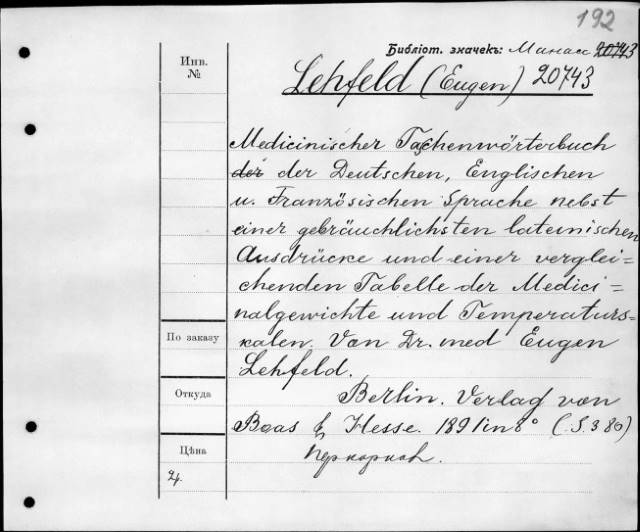 192
Библіот. значекъ: Минас 20743
Инв.
№
Lehfeld (Eugen) 20743
Medicinischer Taschenwörterbuch
der der Deutschen, Englischen
u. Französischen Sprache nebst
einer gebräuchlichsten lateinischen
Ausdrücke und einer verglei=
chenden Tabelle der Medici=
nalgewichte und Temperaturs=
kalen. Von Dr. med Eugen
Lehfeld.
По заказу
Откуда
Berlin. Verlag von
Boas & Hesse. 1891 in 8° (S. 380)
Цѣна